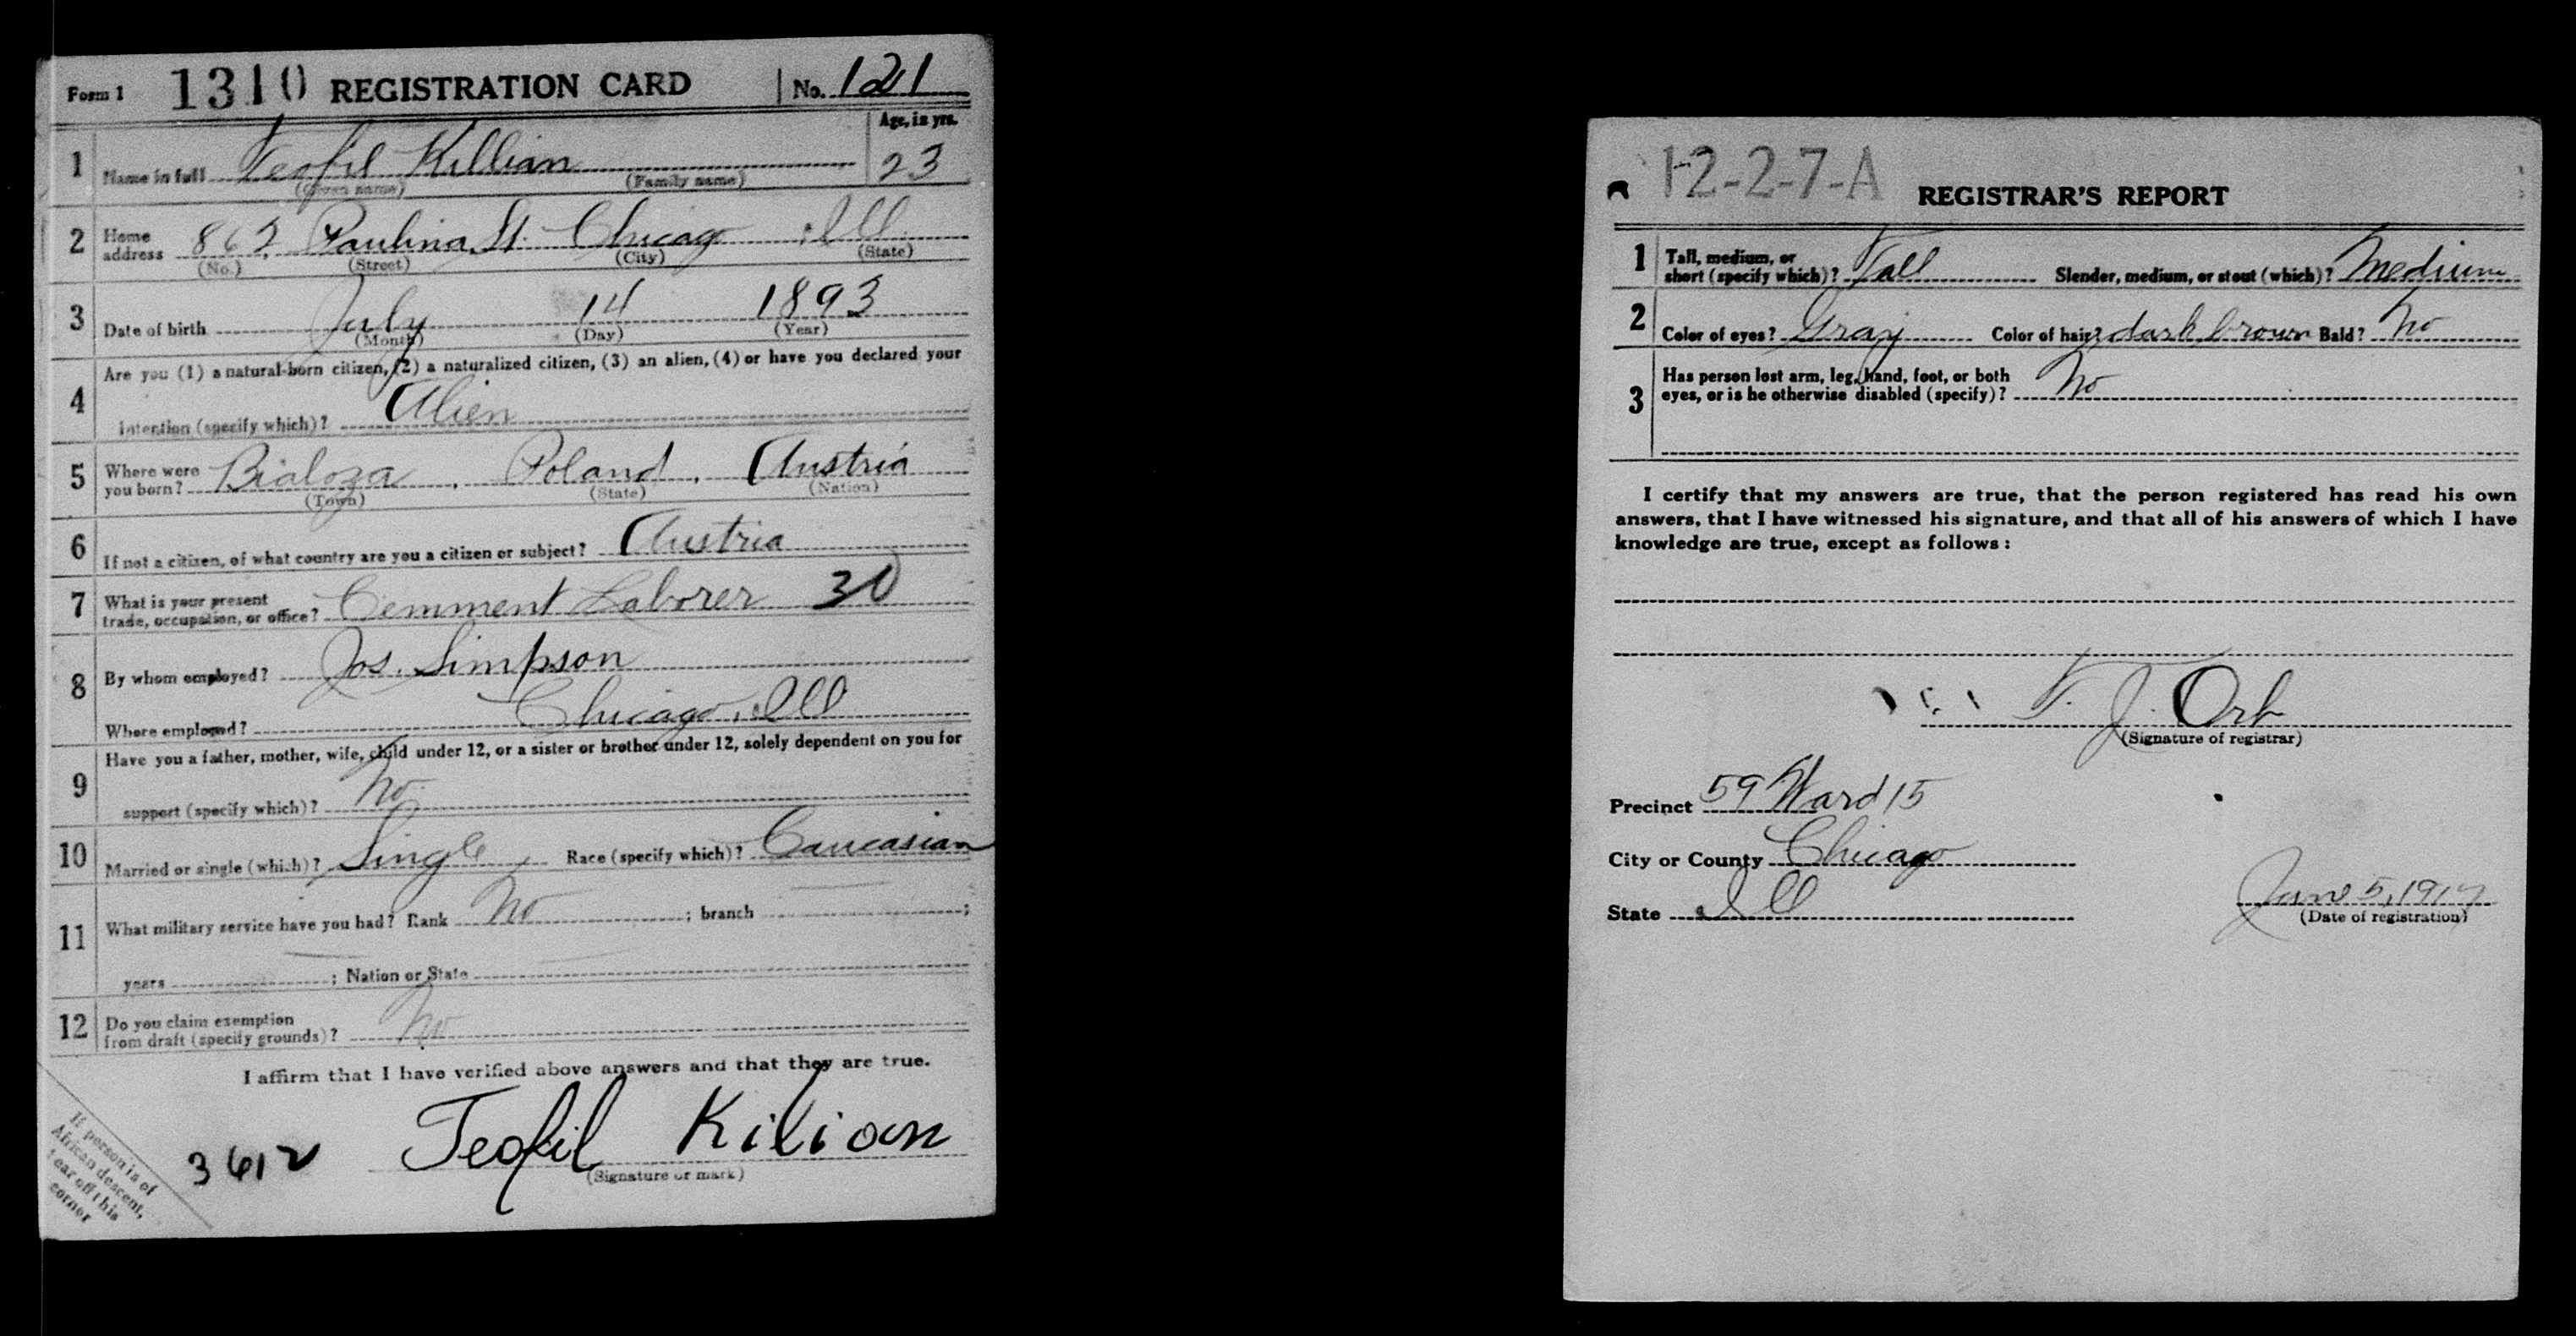 Form 1 1310 REGISTRATION CARD No. 121
Age, in yrs.
1 Name in full Teofil Killian 23
(Given name) (Family name)
2 Home address 862, Paulina St. Chicago Ill
(No.) (Street) (City) (State)
3 Date of birth July 14 1893
(Month) (Day) (Year)
Are you (1) a natural-born citizen, (2) a naturalized citizen, (3) an alien, (4) or have you declared your
4 intention (specify which)? Alien
5 Where were you born? Bialoza, Poland, Austria
(Town) (State) (Nation)
6 If not a citizen, of what country are you a citizen or subject? Austria
7 What is your present trade, occupation, or office? Cemment Laborer 30
8 By whom employed? Jos. Simpson
Where employed? Chicago, Ill
Have you a father, mother, wife, child under 12, or a sister or brother under 12, solely dependent on you for
9 support (specify which)? No.
10 Married or single (which)? Single, Race (specify which)? Caucasian
11 What military service have you had? Rank No ; branch ;
years ; Nation or State
12 Do you claim exemption from draft (specify grounds)? No
I affirm that I have verified above answers and that they are true.
3612 Teofil Kilian
(Signature or mark)
If person is of
African descent,
tear off this
corner
12-2-7-A REGISTRAR'S REPORT
1 Tall, medium, or short (specify which)? Tall Slender, medium, or stout (which)? Medium
2 Color of eyes? Gray Color of hair? dark brown Bald? No
3 Has person lost arm, leg, hand, foot, or both eyes, or is he otherwise disabled (specify)? No
I certify that my answers are true, that the person registered has read his own
answers, that I have witnessed his signature, and that all of his answers of which I have
knowledge are true, except as follows:
F. J. Orb
(Signature of registrar)
Precinct 59 Ward 15
City or County Chicago
State Ill June 5, 1917
(Date of registration)